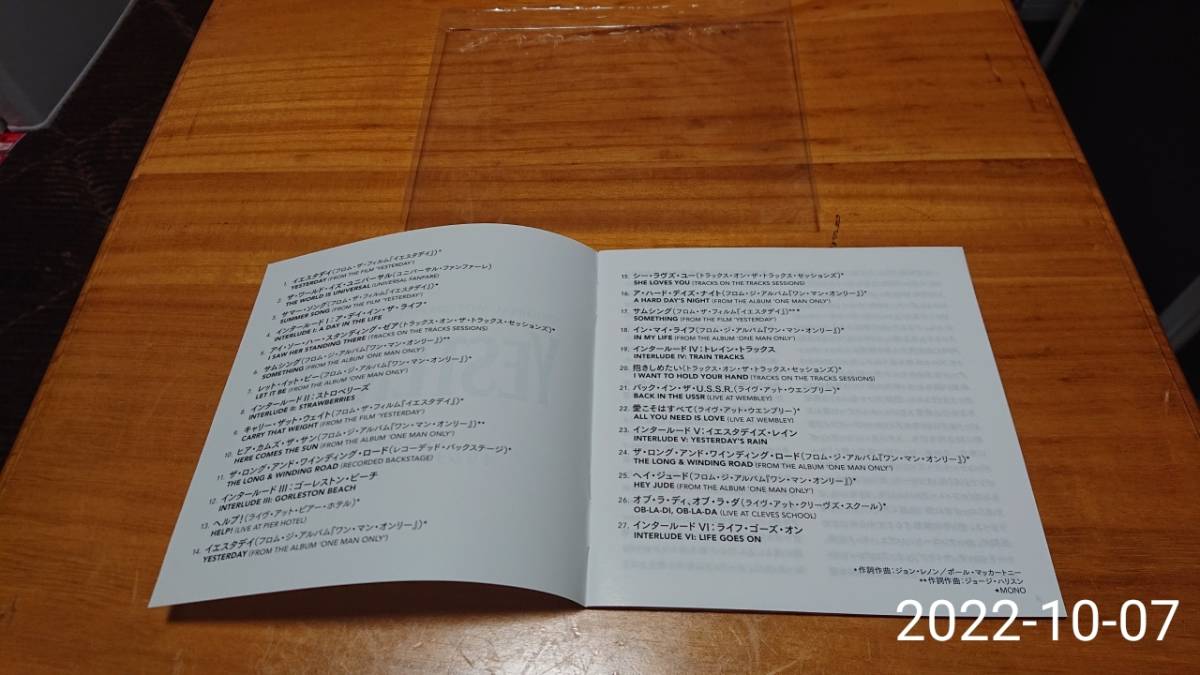 1. イエスタデイ(フロム・ザ・フィルム『イエスタデイ』)*
YESTERDAY (FROM THE FILM 'YESTERDAY')
2. ザ・ワールド・イズ・ユニバーサル(ユニバーサル・ファンファーレ)
THE WORLD IS UNIVERSAL (UNIVERSAL FANFARE)
3. サマー・ソング(フロム・ザ・フィルム『イエスタデイ』)*
SUMMER SONG (FROM THE FILM 'YESTERDAY')
4. インタールード I:ア・デイ・イン・ザ・ライフ*
INTERLUDE I: A DAY IN THE LIFE
5. アイ・ソー・ハー・スタンディング・ゼア(トラックス・オン・ザ・トラックス・セッションズ)*
I SAW HER STANDING THERE (TRACKS ON THE TRACKS SESSIONS)
6. サムシング(フロム・ジ・アルバム『ワン・マン・オンリー』)**
SOMETHING (FROM THE ALBUM 'ONE MAN ONLY')
7. レット・イット・ビー(フロム・ジ・アルバム『ワン・マン・オンリー』)*
LET IT BE (FROM THE ALBUM 'ONE MAN ONLY')
8. インタールード II:ストロベリーズ
INTERLUDE II: STRAWBERRIES
9. キャリー・ザット・ウェイト(フロム・ザ・フィルム『イエスタデイ』)*
CARRY THAT WEIGHT (FROM THE FILM 'YESTERDAY')
10. ヒア・カムズ・ザ・サン(フロム・ジ・アルバム『ワン・マン・オンリー』)**
HERE COMES THE SUN (FROM THE ALBUM 'ONE MAN ONLY')
11. ザ・ロング・アンド・ワインディング・ロード(レコーデッド・バックステージ)*
THE LONG & WINDING ROAD (RECORDED BACKSTAGE)
12. インタールード III:ゴーレストン・ビーチ
INTERLUDE III: GORLESTON BEACH
13. ヘルプ!(ライヴ・アット・ピアー・ホテル)*
HELP! (LIVE AT PIER HOTEL)
14. イエスタデイ(フロム・ジ・アルバム『ワン・マン・オンリー』)*
YESTERDAY (FROM THE ALBUM 'ONE MAN ONLY')
15. シー・ラヴズ・ユー(トラックス・オン・ザ・トラックス・セッションズ)*
SHE LOVES YOU (TRACKS ON THE TRACKS SESSIONS)
16. ア・ハード・デイズ・ナイト(フロム・ジ・アルバム『ワン・マン・オンリー』)*
A HARD DAY'S NIGHT (FROM THE ALBUM 'ONE MAN ONLY')
17. サムシング(フロム・ザ・フィルム『イエスタデイ』)**
SOMETHING (FROM THE FILM 'YESTERDAY')
18. イン・マイ・ライフ(フロム・ジ・アルバム『ワン・マン・オンリー』)*
IN MY LIFE (FROM THE ALBUM 'ONE MAN ONLY')
19. インタールード IV:トレイン・トラックス
INTERLUDE IV: TRAIN TRACKS
20. 抱きしめたい(トラックス・オン・ザ・トラックス・セッションズ)*
I WANT TO HOLD YOUR HAND (TRACKS ON THE TRACKS SESSIONS)
21. バック・イン・ザ・U.S.S.R.(ライヴ・アット・ウエンブリー)*
BACK IN THE USSR (LIVE AT WEMBLEY)
22. 愛こそはすべて(ライヴ・アット・ウエンブリー)*
ALL YOU NEED IS LOVE (LIVE AT WEMBLEY)
23. インタールード V:イエスタデイズ・レイン
INTERLUDE V: YESTERDAY'S RAIN
24. ザ・ロング・アンド・ワインディング・ロード(フロム・ジ・アルバム『ワン・マン・オンリー』)*
THE LONG & WINDING ROAD (FROM THE ALBUM 'ONE MAN ONLY')
25. ヘイ・ジュード(フロム・ジ・アルバム『ワン・マン・オンリー』)*
HEY JUDE (FROM THE ALBUM 'ONE MAN ONLY')
26. オブ・ラ・ディ、オブ・ラ・ダ(ライヴ・アット・クリーヴズ・スクール)*
OB-LA-DI, OB-LA-DA (LIVE AT CLEVES SCHOOL)
27. インタールード VI:ライフ・ゴーズ・オン
INTERLUDE VI: LIFE GOES ON
*作詞作曲:ジョン・レノン/ポール・マッカートニー
**作詞作曲:ジョージ・ハリスン
★MONO
2022-10-07